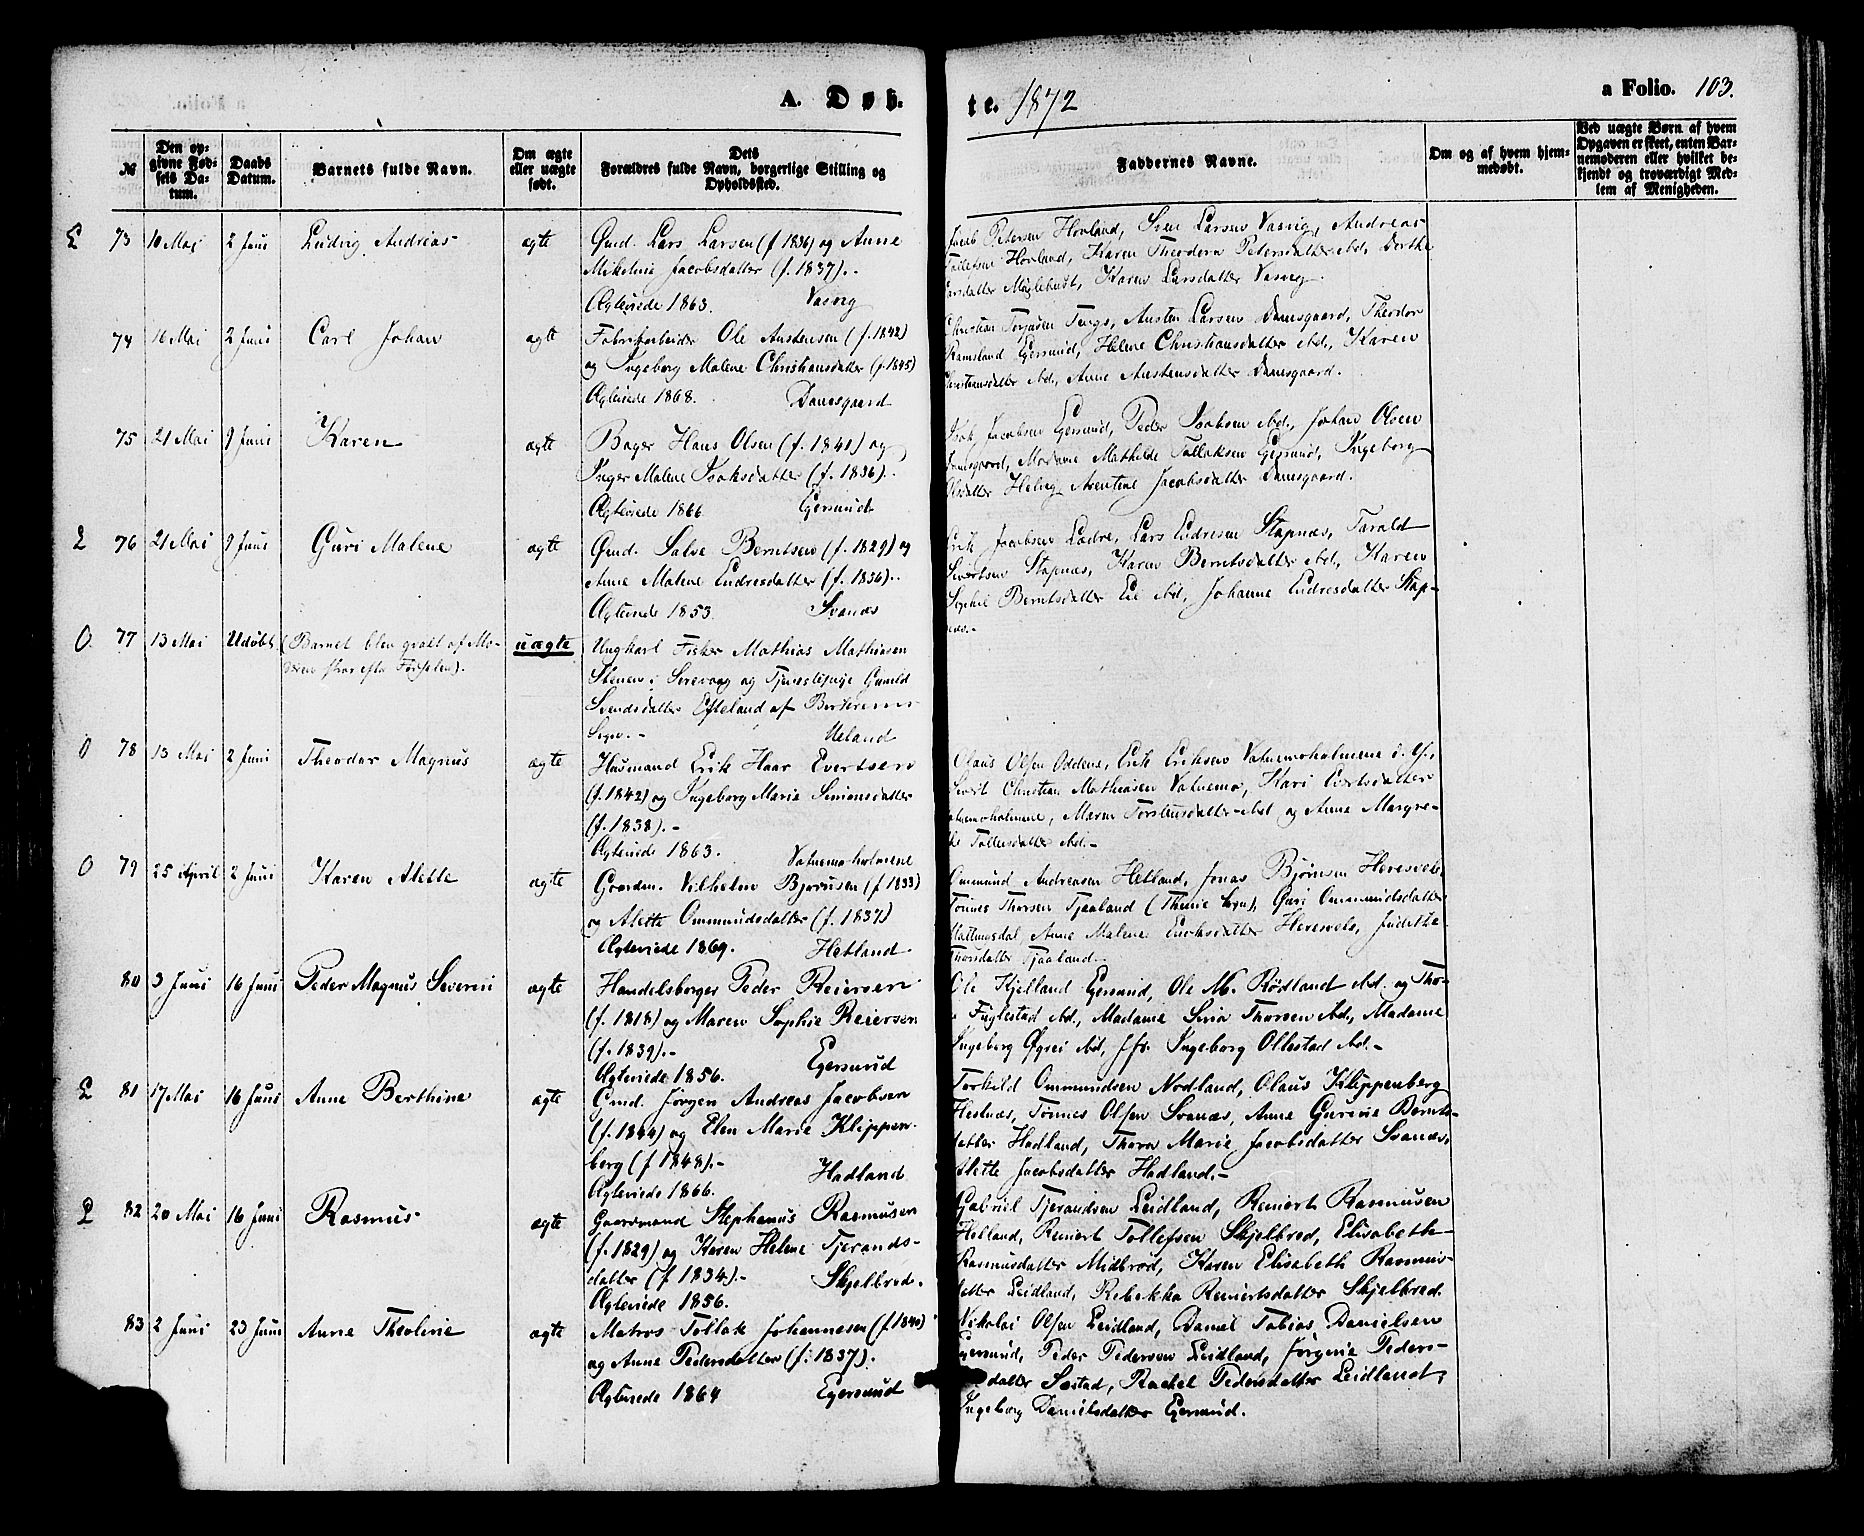 A. Døb-
te. 1872
a Folio. 103.
№
Den op-
givne Fød-
sels Da-
tum.
Daabs
Datum.
Barnets fulde Navn.
Om ægte
eller uægte
født.
Dets
Forældres fulde Navn, borgerlige Stilling og
Opholdssted.
Faddernes Navne.
Om og af hvem hjem-
medøbt.
Ved uægte Børn af hvem
Opgaven er skeet, enten Bar-
nemoderen eller hvilket be-
kjendt og troværdigt Med-
lem af Menigheden.
E 73 10 Mai 2 Juni Ludvig Andreas ægte Gmd. Lars Larsen (f 1836) og Anne
Mikeline Jacobsdatter (f. 1837).-
Ægteviede 1863. Vasvig
Jacob Petersen Hovland, Sven Larsen Vasvig, Andreas
Tollefsen Hovland, Karen Theodora Petersdatter ibd, Dorthe
Larsdatter Møglehust, Karen Larsdatter Vasvig
74 16 Mai 2 Juni Carl Johan ægte Fabrikarbeider Ole Austensen (f. 1842)
og Ingeborg Malene Christiansdatter (f. 1845)
Ægteviede 1868. Damsgaard
Christian Torjusen Tengs, Austen Larsen Damsgaard, Theodor
Ramsland Egersund, Helene Christiansdatter ibd., Karen
Christiansdatter ibd., Anne Austensdatter Damsgaard.
75 21 Mai 9 Juni Karen ægte Bager Hans Olsen (f. 1841) og
Inger Malene Isaksdatter (f. 1836).
Ægteviede 1866 Egersund
Isak Jacobsen Egersund, Peder Isaksen ibd., Johan Olsen
Damsgaard, Madame Mathilde Tollaksen Egersund, Ingeborg
Olsdatter Helvig, Arentine Jacobsdatter Damsgaard.
E 76 21 Mai 9 Juni Guri Malene ægte Gmd. Salve Berntsen (f. 1829) og
Anne Malene Endresdatter (f. 1836).
Ægteviede 1853. Svanæs
Erik Jacobsen Lædre, Lars Endresen Stapnæs, Tarald
Sivertsen Stapnæs, Karen Berntsdatter ibd., Karen
Sophie Berntsdatter Eie ibd, Johanne Endresdatter Stap-
næs.-
O. 77 13 Mai Udøbt (Barnet blev qvalt af Mo-
deren strax efter Fødselen). uægte Ungkarl Fisker Mathias Mathiesen
Stenen i Sirevaag og Tjenestepige Gunild
Svendsdatter Efteland af Berkrems
Sogn.- Ueland
O 78 13 Mai 2 Juni Theodor Magnus ægte Husmand Erik Haar Evertsen
(f. 1842) og Ingeborg Marie Simonsdatter
(f. 1838).-
Ægteviede 1863. Vatnemoholmene
Olaus Olsen Oddens, Erik Eriksen Vatnemoholmene d. y.,
Sivert Christian Mathiasen Vatnemo, Kari Evertsdatter
Vatnemoholmene, Maren Torstensdatter ibd og Anne Margre-
the Tollefsdatter ibd.-
O 79 25 April 2 Juni Karen Alette ægte Gaardm. Vilhelm Bjørnsen (f 1833)
og Alette Ommundsdatter (f. 1837)
Ægteviede 1869. Hetland
Ommund Andreasen Hetland, Jonas Bjørnsen Heresvele,
Tønnes Thorsen Tjaaland (Thime Sogn), Guri Ommundsdatter
Anne Malene Eriksdatter Heresvele, Judithe
Thorsdatter Tjaaland.-
80 3 Juni 16 Juni Peder Magnus Severin ægte Handelsborger Peder Reiersen
(f. 1818) og Maren Sophie Reiersen
(f. 1839).- Egersund
Ægteviede 1856.
Ole Kjelland Egersund, Ole M. Rødland ibd. og Tho-
Fuglestad ibd., Madame Siria Thorsen ibd., Madame
Ingeborg Øgrei ibd, Jfr. Ingeborg Ollestad ibd.-
E 81 17 Mai 16 Juni Anne Berthine ægte Gmd. Jörgen Andreas Jacobsen
(f. 1844) og Elen Marie Klippen-
berg (f 1848).- Hadland
Ægteviede 1866.
Torkild Ommundsen Nodland, Olaus Klippenberg
Hestnæs, Tønnes Olsen Svanæs, Anne Gurine Bernts-
datter Hadland, Thora Marie Jacobsdatter Svanæs,
Alette Jacobsdatter Hadland.-
E 82 20 Mai 16 Juni Rasmus ægte Gaardmand Stephanus Rasmusen
(f. 1829) og Karen Helene Tjerands-
datter (f 1834).- Skjelbred.
Ægteviede 1856.
Gabriel Tjerandsen Leidland, Reinert Rasmusen
Helland, Reinert Tollefsen Skjelbred, Elisabeth
Rasmusdatter Midbrød, Karen Elisabeth Rasmus-
datter Leidland, Rebekka Reinertsdatter Skjelbred.
83 2 Juni 23 Juni Anne Theoline ægte Matros Tollak Johannesen (f. 1840)
og Anne Pedersdatter (f. 1837).
Ægteviede 1864 Egersund
Nikolai Olsen Leidland, Daniel Tobias Danielsen
Egersund, Peder Pedersen Leidland, Jørgine Peders-
datter Sæstad, Rachel Pedersdatter Leidland,
Ingeborg Danielsdatter Egersund.